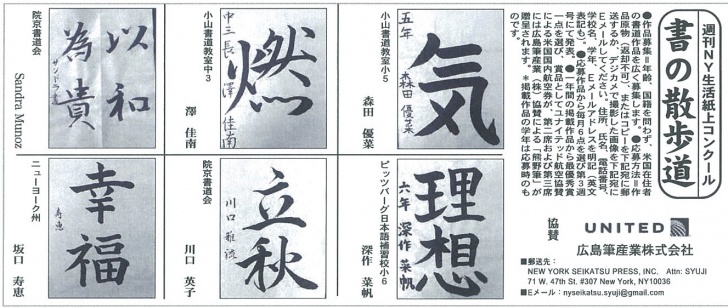 週刊NY生活紙上コンクール
書の散歩道
●作品募集=年齢、国籍を問わず、米国在住者
の書道作品を広く募集します。●応募方法=作
品原物（返却不可）、またはコピーを下記宛に郵
送するか、デジカメで撮影した画像を下記宛に
Eメールしてください。住所、氏名、電話番号、
学校名、学年、Eメールアドレスを明記（英文
表記も）。●応募作品から毎月6点を選び第3週
号にて発表。●一年間の掲載作品から最優秀賞
一点を選び、賞品としてユナイテッド航空協賛
による米国国内航空券が、第二席および第三席
には広島筆産業（株）協賛による「熊野筆」が
贈呈されます。＊掲載作品の学年は応募時のも
のです。
協賛
UNITED
広島筆産業株式会社
■郵送先：
NEW YORK SEIKATSU PRESS, INC. Attn: SYUJI
71 W. 47th St. #307 New York, NY10036
■Eメール：nyseikatsu.syuji@gmail.com
気
五年 森田優菜
小山書道教室小5
森田 優菜
燃
中三長澤佳南
小山書道教室中3
澤 佳南
以和
為貴
サンドラ書
院京書道会
Sandra Munoz
理想
六年 深作菜帆
ピッツバーグ日本語補習校小6
深作 菜帆
立秋
川口雅流
院京書道会
川口 英子
幸福
寿恵
ニューヨーク州
坂口 寿恵